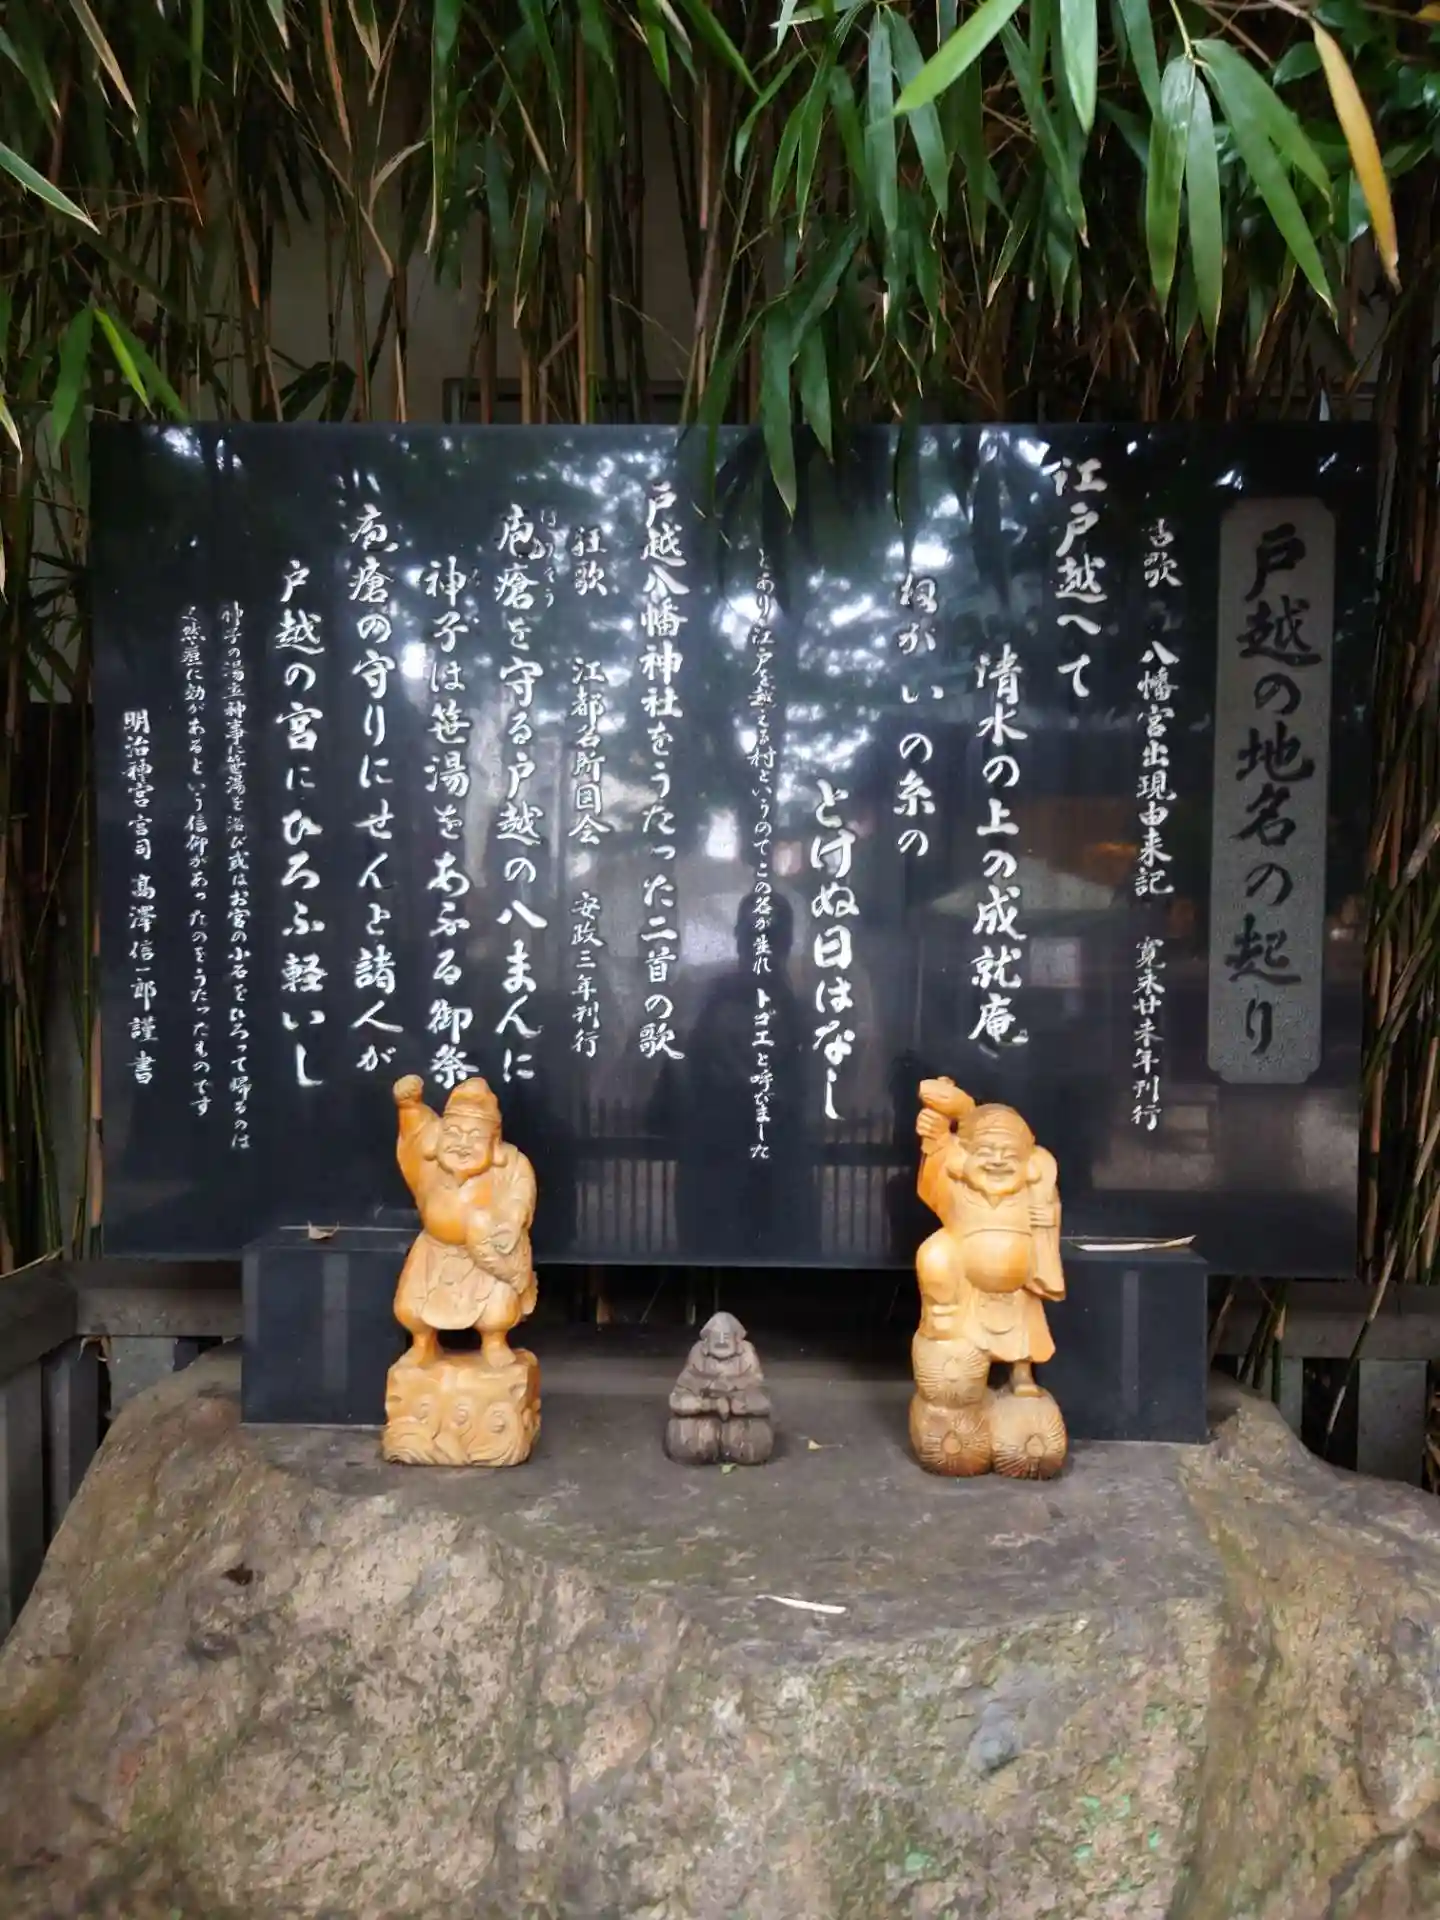 戸越の地名の起り
古歌 八幡宮出現由来記 寛永廿未年刊行
江戸越へて
清水の上の成就庵
ねがいの糸の
とけぬ日はなし
とあり江戸を越える村というのでこの名が生れ トゴエと呼びました
戸越八幡神社をうたった二首の歌
狂歌 江都名所図会 安政三年刊行
疱瘡を守る戸越の八まんに
ほうそう
神子は笹湯をあふる御祭
みこ
疱瘡の守りにせんと諸人が
戸越の宮にひろふ軽いし
神子の湯立神事に笹湯を浴び或はお宮の小石をひろって帰るのは
天然痘に効があるという信仰があったのをうたったものです
明治神宮宮司 高澤信一郎 謹書